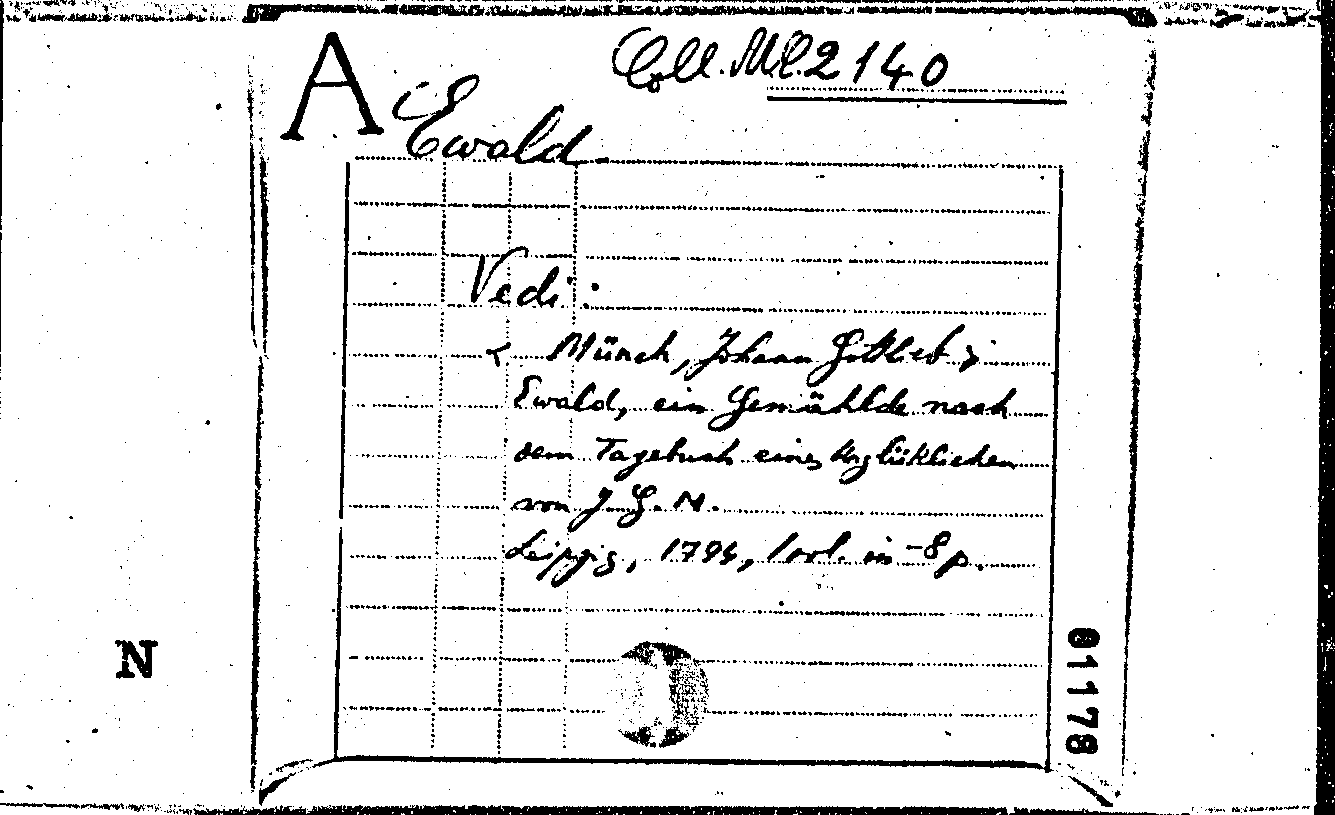 A
Coll. Ml. 2140
Ewald.
Vedi:
< Münch, Johann Gottlieb >
Ewald, ein Gemählde nach
dem Tagebuch eines Unglüklichen
von J. G. M.
Leipzig, 1794, 1 vol. in-8p.
N
01178